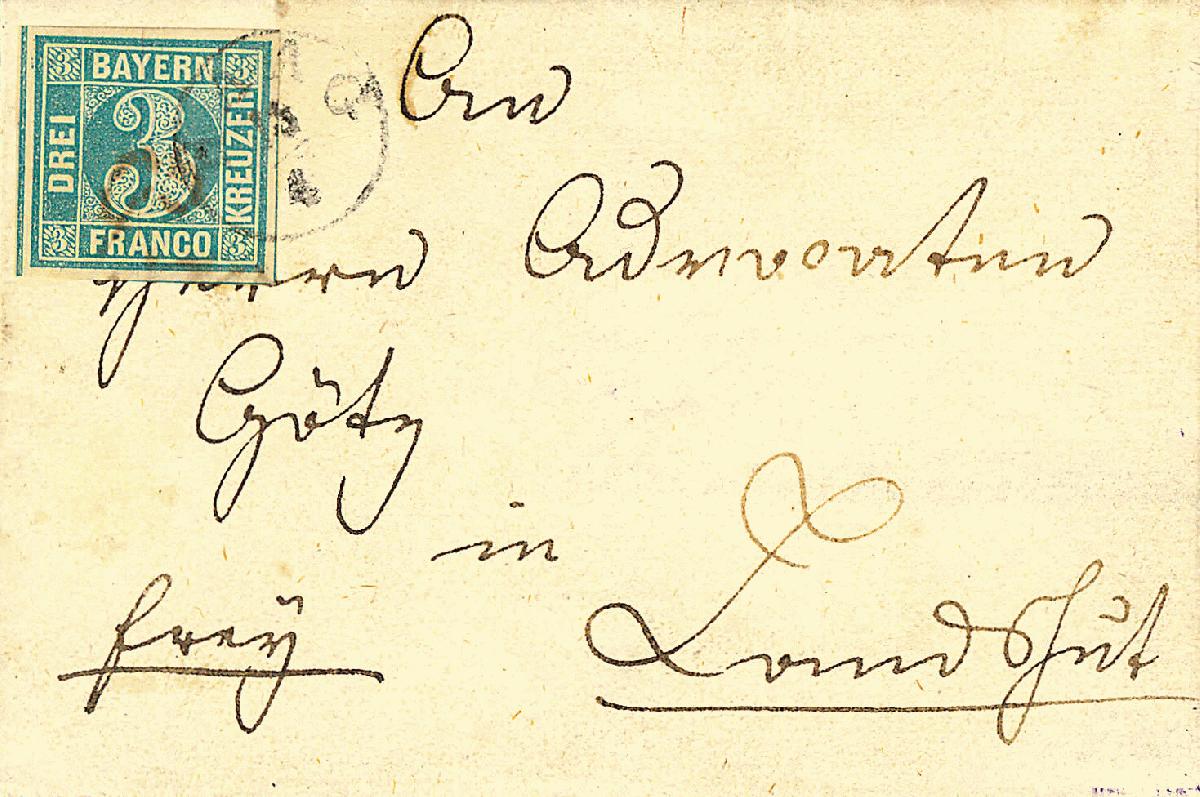 3 BAYERN 3
DREI 3 KREUZER
3 FRANCO 3
An
Herrn Advocaten
Götz
in
frey
Landshut